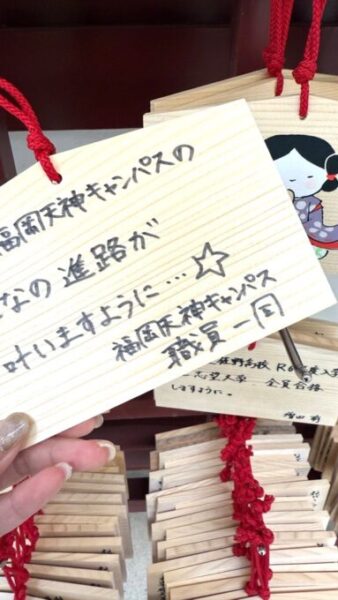 福岡天神キャンパスの
なの進路が
叶いますように…☆
福岡天神キャンパス
職員一同
野高校 R6
志望大学 全員合格
しますように。